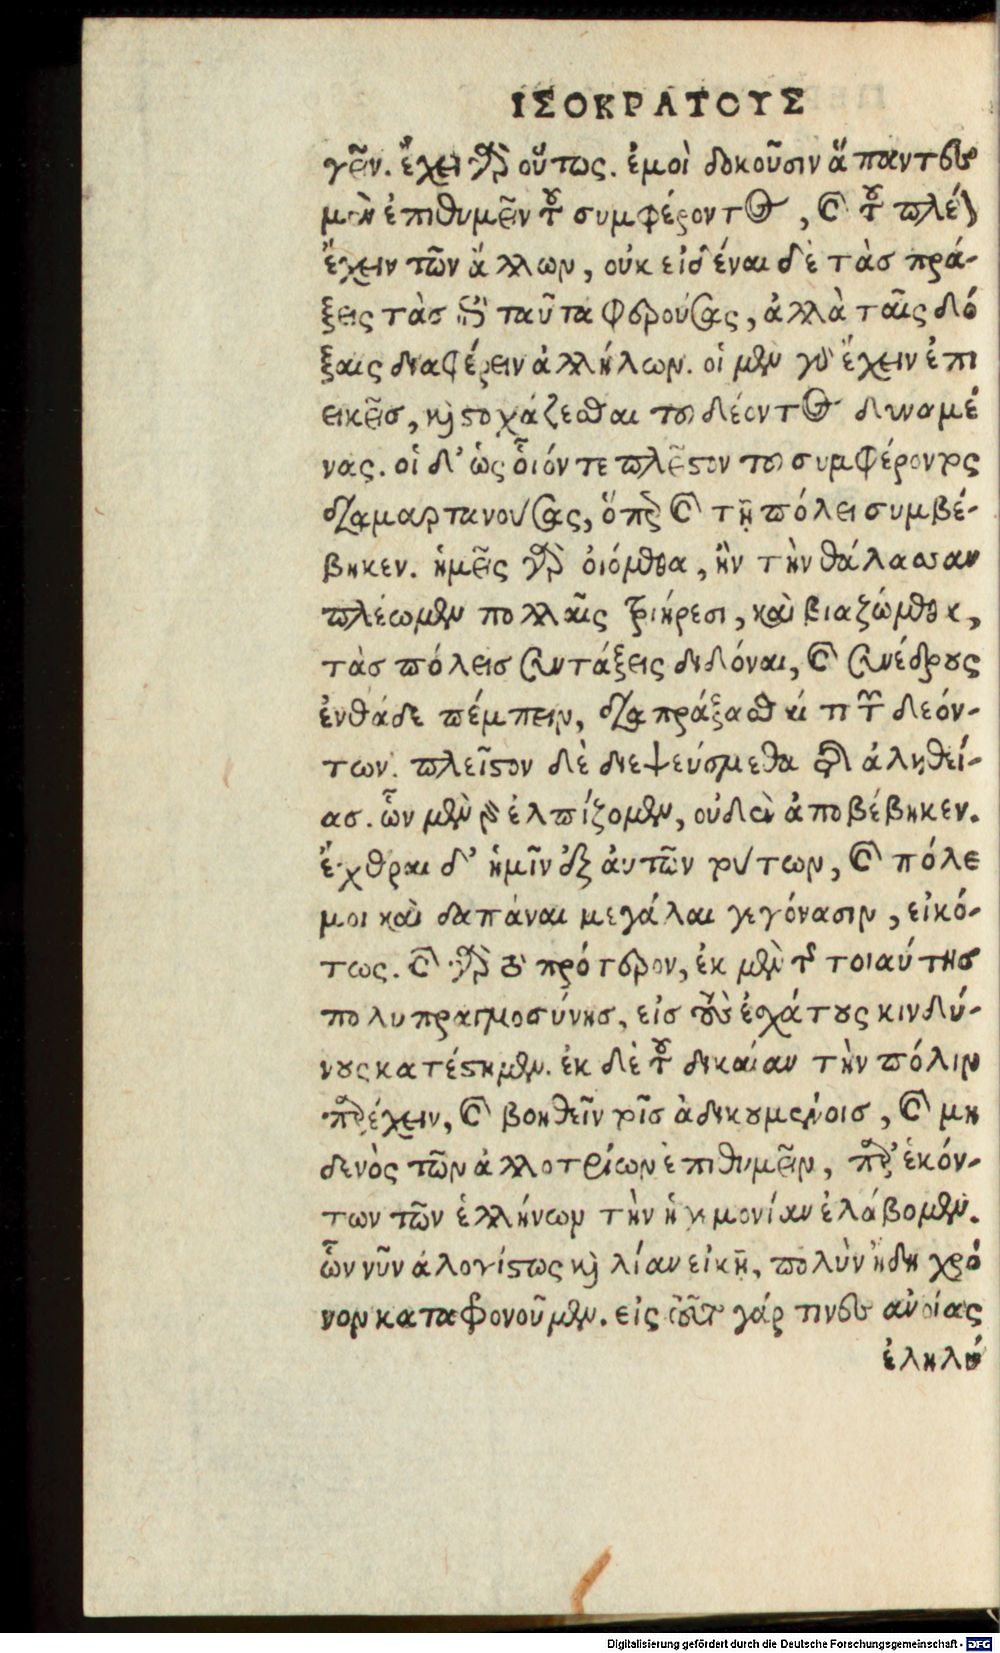 ΙΣΟΚΡΑΤΟΥΣ
γεῖν. ἔχει γὰρ οὕτως. ἐμοὶ δοκοῦσιν ἅπαντες
μὲν ἐπιθυμεῖν τοῦ συμφέροντος, καὶ τοῦ πλέον
ἔχειν τῶν ἄλλων, οὐκ εἰδέναι δὲ τὰσ πρά-
ξεις τὰσ ἐπὶ ταῦτα φερούσας, ἀλλὰ ταῖς δό
ξαις διαφέρειν ἀλλήλων. οἱ μὲν γὰρ ἔχειν ἐπι
εικεῖσ, καὶ στοχάζεσθαι τοῦ δέοντος δυναμέ
νας. οἱ δ' ὡς οἷόν τε πλεῖστον τοῦ συμφέροντος
διαμαρτανούσας, ὅπερ καὶ τῇ πόλει συμβέ-
βηκεν. ἡμεῖς γὰρ οἰόμεθα, ἢν τὴν θάλασσαν
πλέωμεν πολλαῖς τριήρεσι, καὶ βιαζώμεθα,
τὰσ πόλεισ συντάξεις διδόναι, καὶ συνέδρους
ἐνθάδε πέμπειν, διαπράξασθαί τι τῶν δεόν-
των. πλεῖστον δὲ διεψεύσμεθα τῆς ἀληθεί-
ασ. ὧν μὲν γὰρ ἐλπίζομεν, οὐδὲν ἀποβέβηκεν.
ἔχθραι δ' ἡμῖν ἐξ αὐτῶν τούτων, καὶ πόλε
μοι καὶ δαπάναι μεγάλαι γεγόνασιν, εἰκό-
τως. καὶ γὰρ τὸ πρότερον, ἐκ μὲν τῆς τοιαύτησ
πολυπραγμοσύνησ, εἰσ τοὺς ἐσχάτους κινδύ-
νους κατέστημεν. ἐκ δὲ τοῦ δικαίαν τὴν πόλιν
παρέχειν, καὶ βοηθεῖν τοῖσ ἀδικουμένοισ, καὶ μη
δενὸς τῶν ἀλλοτρίων ἐπιθυμεῖν, παρ' ἑκόν-
των τῶν ἑλλήνων τὴν ἡγεμονίαν ἐλάβομεν.
ὧν νῦν ἀλογίστως καὶ λίαν εἰκῇ, πολὺν ἤδη χρό
νον καταφρονοῦμεν. εἰς τοῦτο γάρ τινες ἀνοίας
ἐληλύ
Digitalisierung gefördert durch die Deutsche Forschungsgemeinschaft - DFG